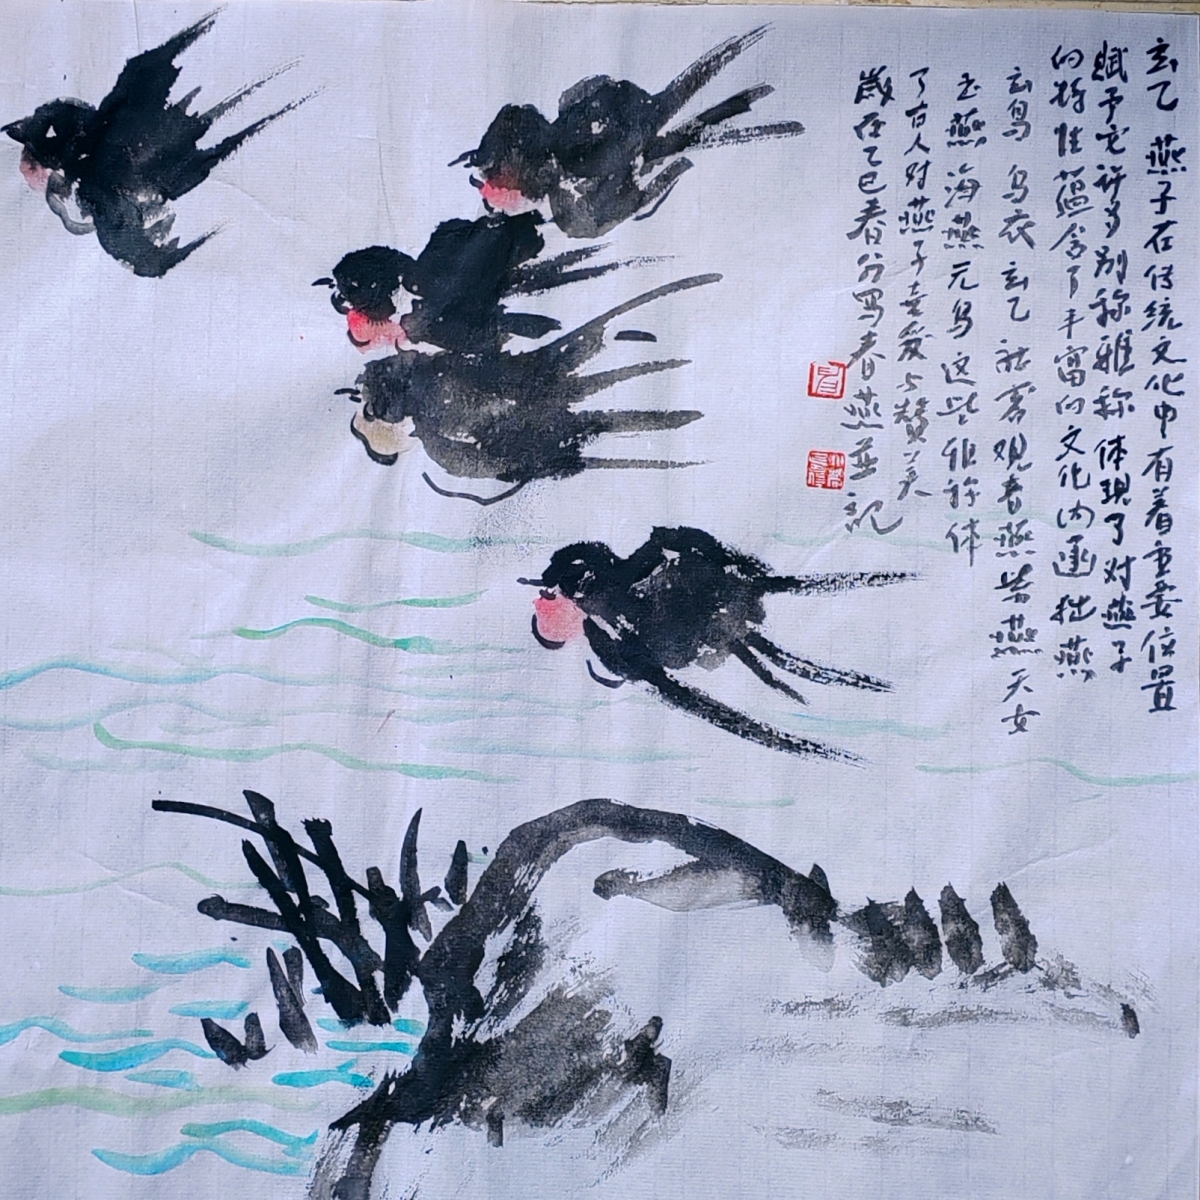 玄乙 燕子在传统文化中有着重要位置
赋予它许多别称雅称体现了对燕子
的特性蕴含了丰富的文化内涵 拙燕
玄鸟 乌衣 玄乙 社客 观音燕 紫燕 天女
玉燕 海燕 元鸟 这些雅称体
了古人对燕子喜爱与赞美
岁在乙巳春分写春燕并记